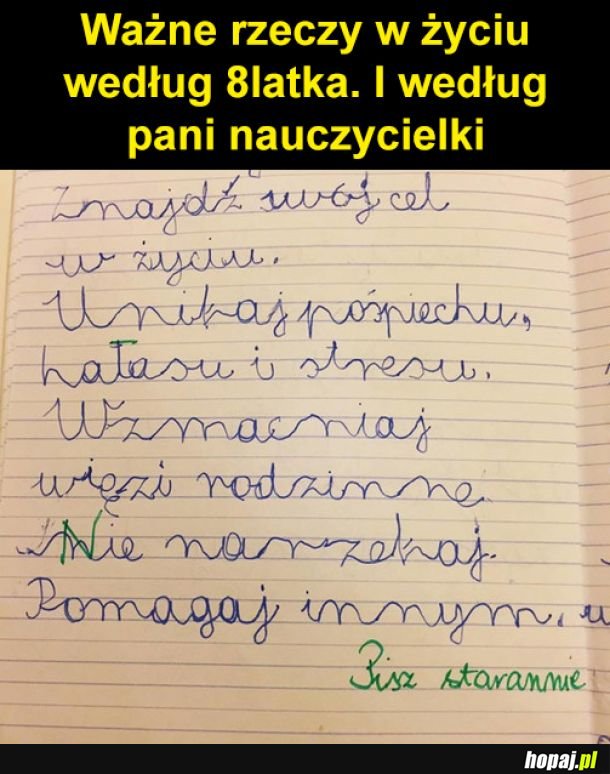 Ważne rzeczy w życiu
według 8latka. I według
pani nauczycielki
Znajdź swój cel
w życiu.
Unikaj pośpiechu,
hałasu i stresu.
Wzmacniaj
więzi rodzinne.
Nie narzekaj.
Pomagaj innym.
Pisz starannie
hopaj.pl